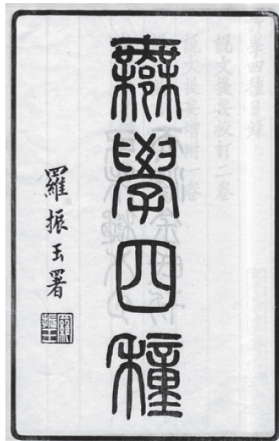 鄦學四種
羅振玉署